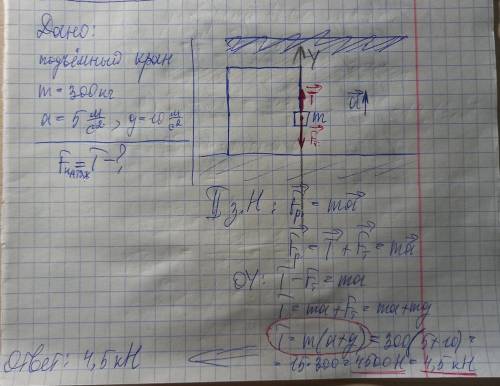 Дано:
подъёмный кран
m = 300 кг
a = 5 м/с², g = 10 м/с²
Fнатяж = T - ?
Y
T
m
Fт
a
II з.Н: Fр = ma
Fр = T + Fт = ma
OY: T - Fт = ma
T = ma + Fт = ma + mg
T = m(a+g) = 300(5+10) =
= 15·300 = 4500 Н = 4,5 кН
Ответ: 4,5 кН